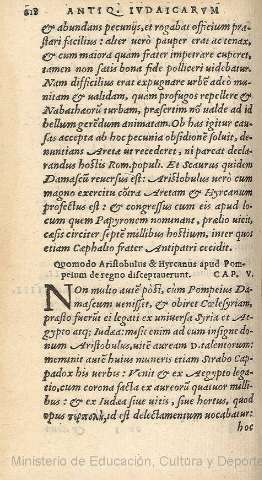 ANTIQ. IVDAICARVM
& abundans pecunijs, et rogabat officium præ-
stari facilius: alter uerò pauper erat ac tenax,
& cum maiora quàm frater impetrare cuperet,
tamen non satis bona fide polliceri uidebatur.
Nam difficilius erat expugnare urbẽ adeò mu-
nitam et ualidam, quàm profugos repellere et
Nabathæorũ turbam, præsertim nõ ualde ad id
bellum gerẽdum animatam. Ob has igitur cau-
sas accepta ab hoc pecunia obsidionẽ soluit, de-
nuntians Aretæ ut recederet, ni pareat decla-
randus hostis Rom. populi. Et Scaurus quidem
Damascũ reuersus est: Aristobulus uerò cum
magno exercitu cõtra Aretam et Hyrcanum
profectus est: & congressus cum eis apud lo-
cum quem Papyronem nominant, prælio uicit,
cæsis circiter septẽ millibus hostium, inter quos
etiam Cephalio frater Antipatri occidit.
Quomodo Aristobulus & Hyrcanus apud Pom-
peium de regno disceptauerunt. CAP. V.
NON multo autẽ pòst, cum Pompeius Da-
mascum uenisset, et obiret Cœlesyriam,
præsto fuerũt ei legati ex uniuersa Syria et Ae-
gypto atq; Iudæa: misit enim ad eum insigne do-
num Aristobulus, uitẽ auream D. talentorum:
meminit autẽ huius muneris etiam Strabo Cap-
padox his uerbis: Venit & ex Aegypto lega-
tio, cum corona facta ex aureorũ quatuor milli-
bus: & ex Iudæa siue uitis, siue hortus, quod
opus τερπωλὴ, id est delectamentum uocabatur:
hoc
Ministerio de Educación, Cultura y Deporte